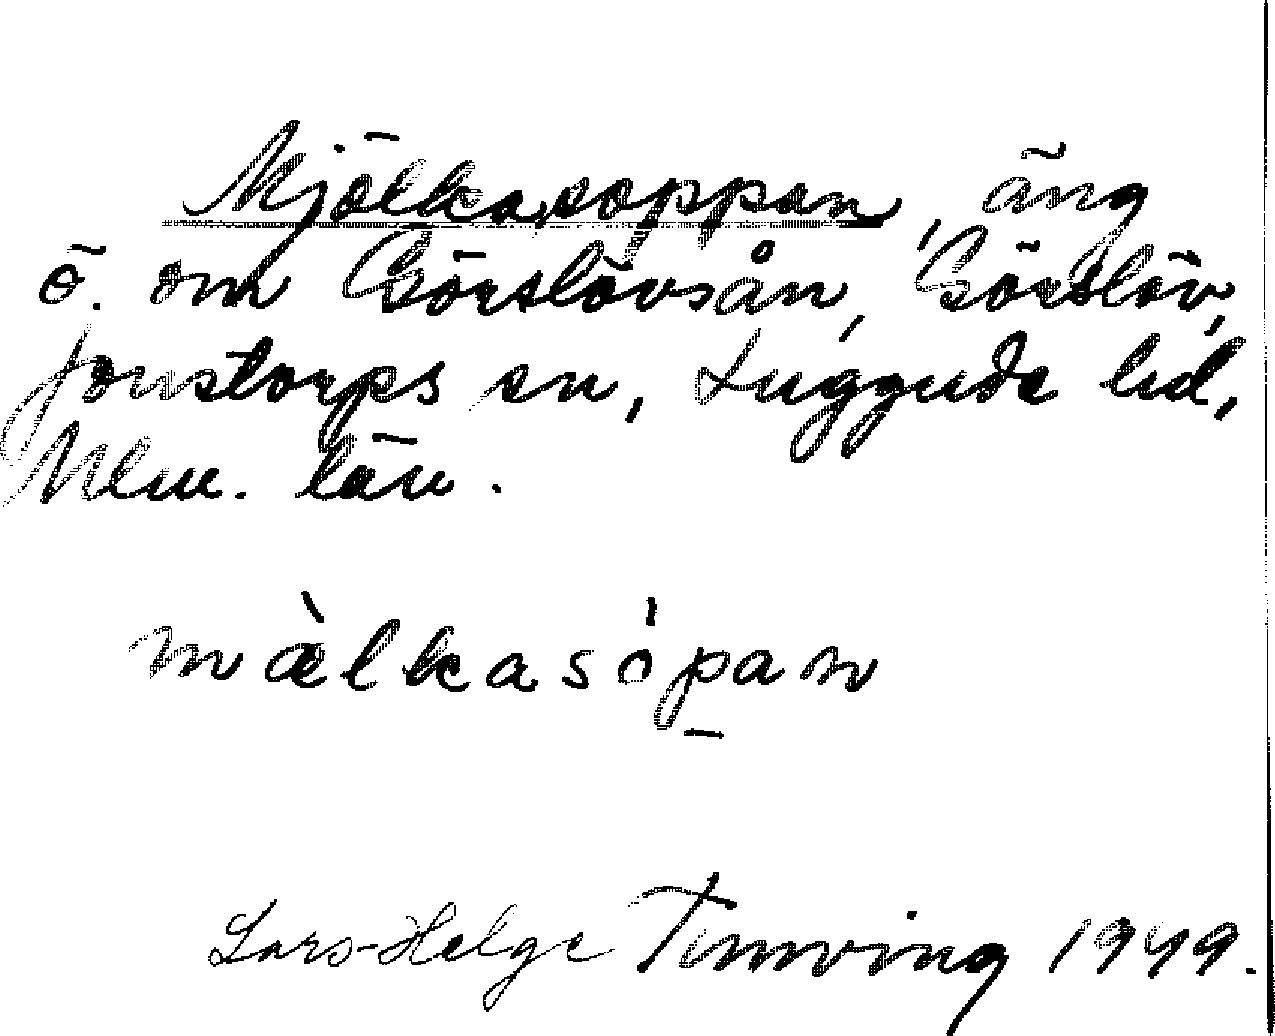 Mjölkasoppan, äng
ö. om Görslövsån, Görslöv,
Jonstorps sn, Luggude hd,
Mlm. län.
mælkasòpan
Lars-Helge 1949.